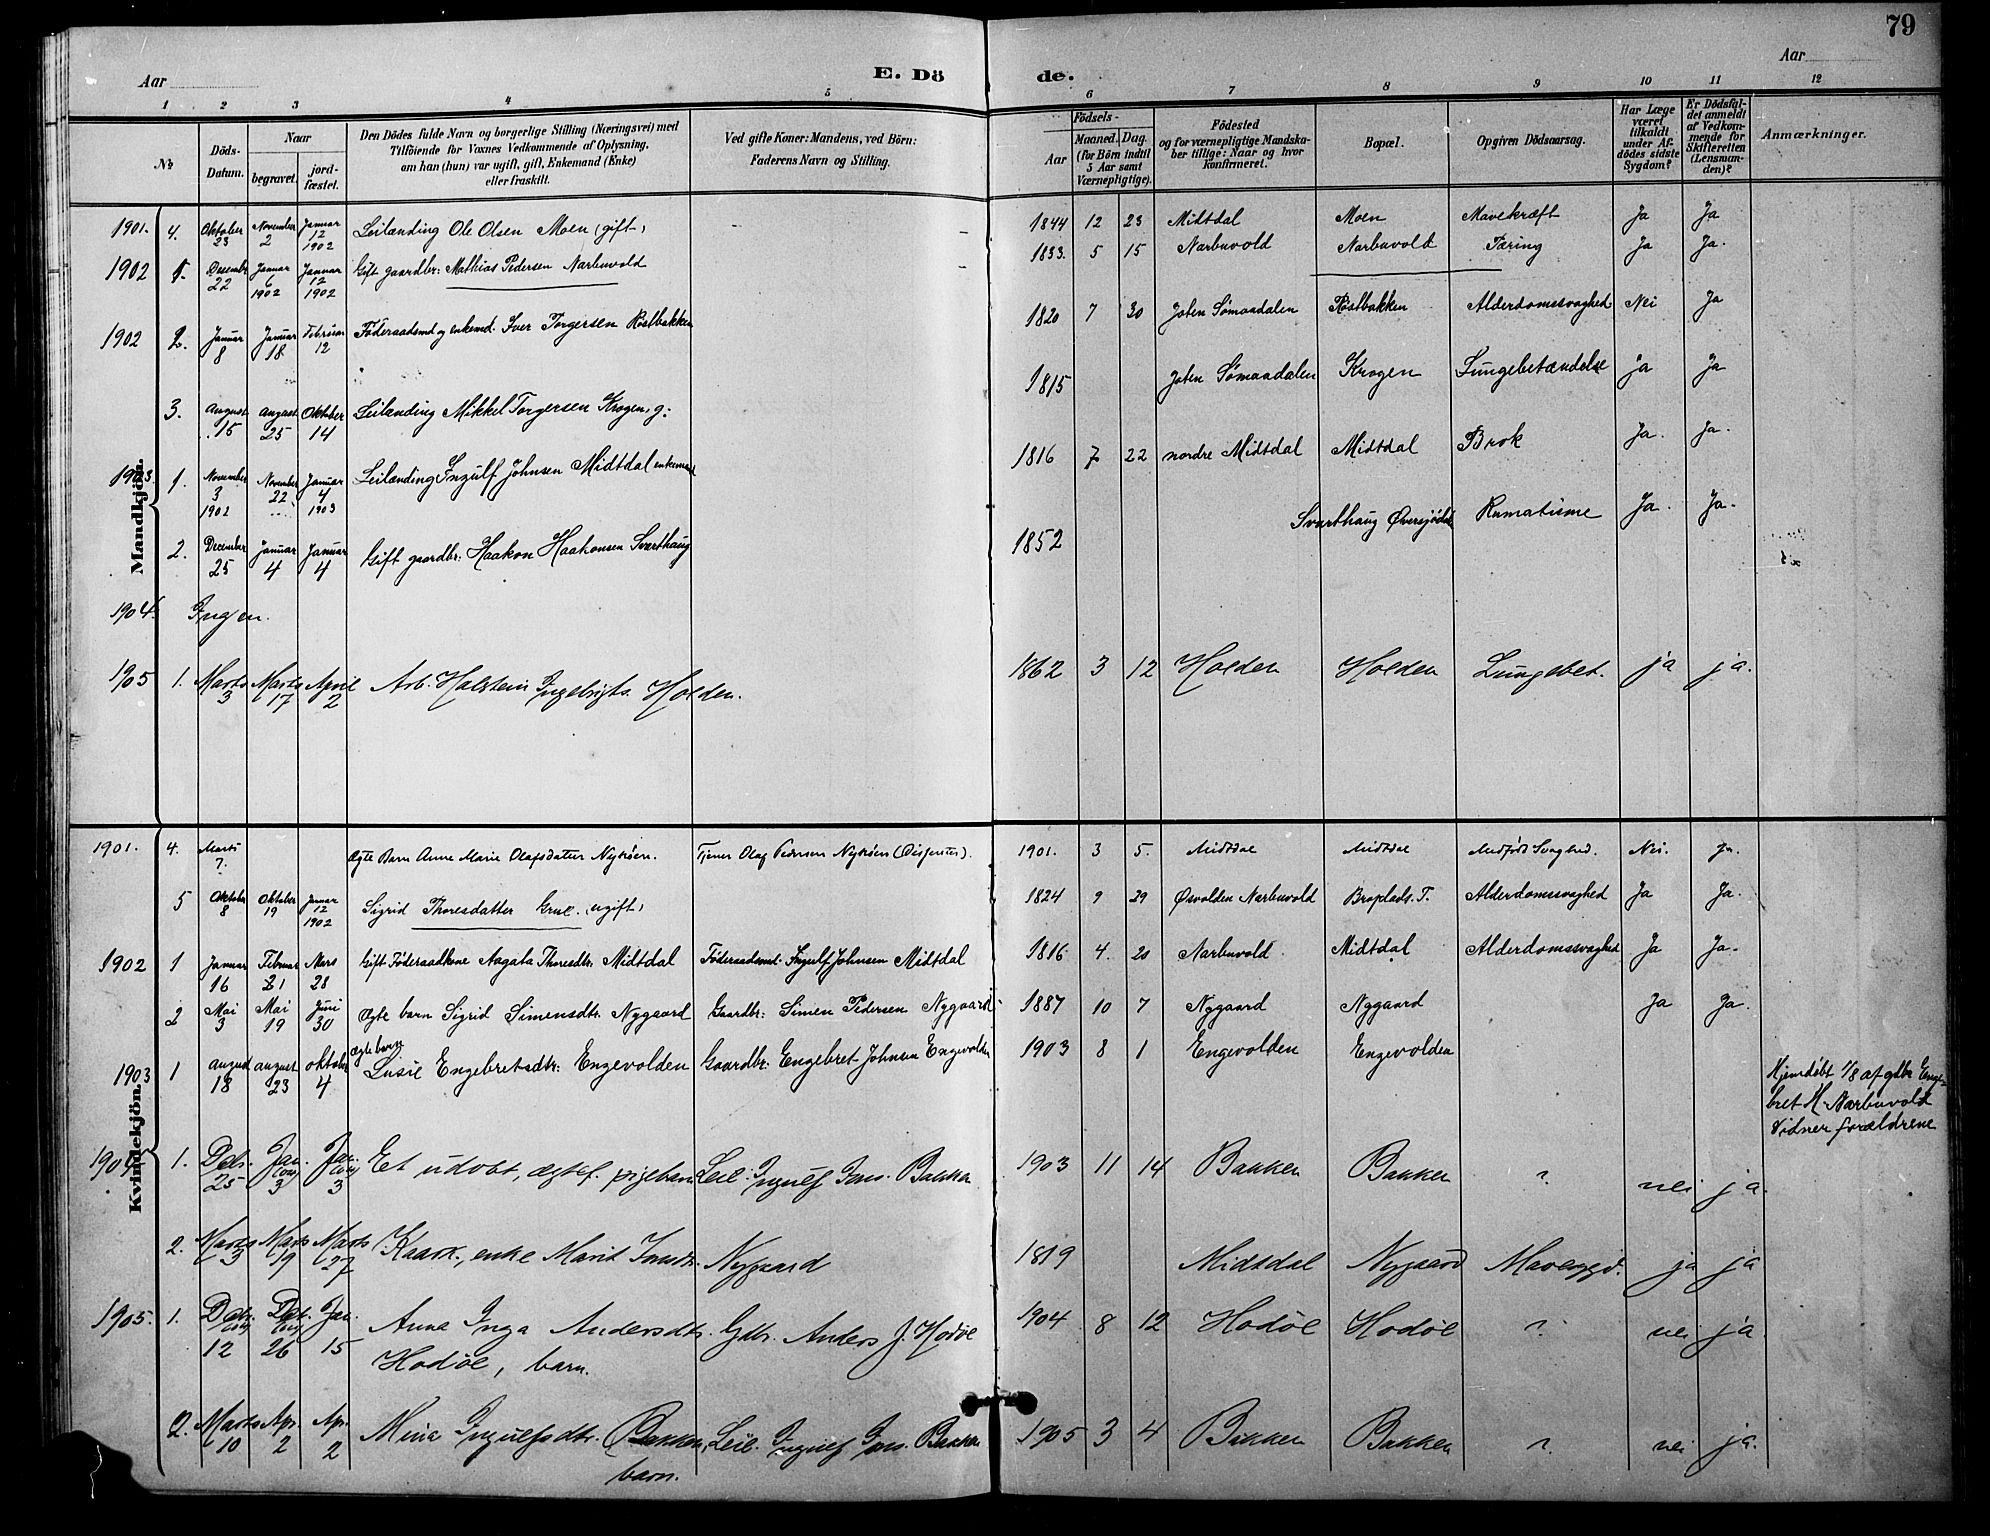 79
Aar
E. Dö
de.
Aar
1 2 3 4 5 6 7 8 9 10 11 12
№
Döds-Datum.
Naar
begravet.
jord-fæstet.
Den Dödes fulde Navn og borgerlige Stilling (Næringsvei) med
Tilföiende for Voxnes Vedkommende af Oplysning,
om han (hun) var ugift, gift, Enkemand (Enke)
eller fraskilt.
Ved gifte Koner: Mandens, ved Börn:
Faderens Navn og Stilling.
Födsels-
Aar
Maaned. Dag.
(for Börn indtil
5 Aar samt
Værnepligtige).
Födested
og for værnepligtige Mandska-
ber tillige: Naar og hvor
konfirmeret.
Bopæl.
Opgiven Dödsaarsag.
Har Læge
været
tilkaldt
under Af-
dödes sidste
Sygdom?
Er Dödsfal-
det anmeldt
af Vedkom-
mende for
Skifteretten
(Lensman-
den)?
Anmærkninger.
Mandkjön.
1901. 4. Oktober 23 November 2 Januar 12 1902 Leilænding Ole Olsen Moen (gift) 1844 12 23 Midtdal Moen Mavekræft Ja Ja
1902 1. Desember 22 Januar 6 1902 Januar 12 1902 Gift gaardbr: Mathias Pedersen Narbuvold 1833. 5 15 Narbuvold Narbuvold Tæring Ja Ja.
1902 2. Januar 8 Januar 18 Februar 12 Föderaadsmd og enkemd. Iver Torgersen Röstbakken 1820 7 30 Joten Sømaadalen Röstbakken Alderdomssvaghed Nei Ja
3. August 15 August 25 Oktober 14 Leilænding Mikkel Torgersen Krogen, g: 1815 Joten Sømaadalen Krogen Lungebetændelse ja Ja
1903. 1. November 3 1902 November 22 Januar 4 1903 Leilænding Ingulf Johnsen Midtdal enkemand 1816 7 22 nordre Midtdal Midtdal Brok Ja. Ja.
2. December 25 Januar 4 Januar 4 Gift gaardbr: Haakon Haakonsen Svarthaug 1852 Svarthaug Øversjødal Rumatisme Ja. Ja.
1904. Ingen.
1905 1. Marts 3 Marts 17 April 2 Arb. Halstein Ingebrigts. Holden. 1862 3 12 Holden Holden Lungebet. ja ja.
Kvindekjön.
1901. 4. Marts ? Ægte Barn Anne Marie Olafsdatter Nyksöen. Tjener Olaf Pedersen Nyksöen 1901. 3 5. Midtdal Midtdal Medfødt Svaghed. Nei. Ja.
5 Oktober 8 Oktober 19 Januar 12 1902 Sigrid Thoresdatter Grue. (ugift) 1824 9 29 Øsvolden Narbuvold Broplads. T. Alderdomssvaghed Ja Ja.
1902 1 Januar 16 Februar 21 Mars 28 Gift Föderaadkone Aagata Thoresdtr: Midtdal Föderaadsmd. Ingulf Johnsen Midtdal 1816 4. 20 Narbuvold Midtdal Alderdomssvaghed Ja Ja.
2 Mai 3 Mai 19 Juni 30 Ægte barn Sigrid Simensdtr. Nygaard Gaardbr: Simen Pedersen Nygaard 1887 10 7 Nygaard Nygaard Ja Ja.
1903 1 august 18 august 23 oktober 4 Ægte barn Lusie Engebretsdtr: Engevolden Gaardbr: Engebret Johnsen Engevolden 1903 8 1 Engevolden Engevolden
Hjemdöbt 1/8 af gdbr Enge-
bret H. Narbuvold
Vidner forældrene
1904 1. Decbr. 25 Jan. 3 Jan. 3 Et udøbt, ægtef. pigebarn Leil. Ingulf Jons. Bakken 1903 11 14 Bakken Bakken ? nei ja.
2. Marts 3 Marts 19 Marts 27 Kaark., enke Marit Jonsdtr. Nygaard 1819 Midtdal Nygaard ja ja
1905. 1. Decbr. 12 Dcbr. 26 Jan. 15 Anna Inga Andersdtr. Hodøl, barn. Gdbr. Anders J. Hodøl 1904 8 12 Hodøl Hodøl ? nei ja
2. Marts 10 Apr. 2 Apr. 2 Mina Ingulfsdtr. Bakken, barn. Leil. Ingulf Jons. Bakken 1905 3 4 Bakken Bakken ? nei ja.